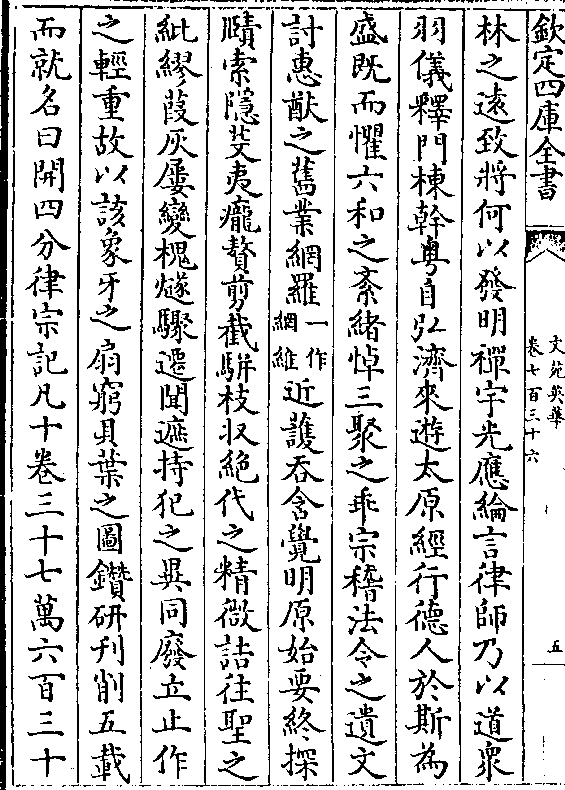 欽定四庫全書
文苑英華
卷七百三十六
五
林之遠致將何以發明禪宇光應綸言律師乃以道衆
羽儀釋門棟幹粤自弘濟來遊太原經行德人於斯為
盛既而懼六和之紊緒悼三聚之乖宗稽法令之遺文
討惠猷之舊業網羅一作網維近護吞含覺明原始要終探
賾索隱芟夷疣贅剪截駢枝収絶代之精微詰往聖之
紕繆葭灰屢變槐燧驟遷聞遮持犯之異同廢立止作
之輕重故以該象牙之扇窮貝葉之圖鑽研刋削五載
而就名曰開四分律宗記凡十卷三十七萬六百三十